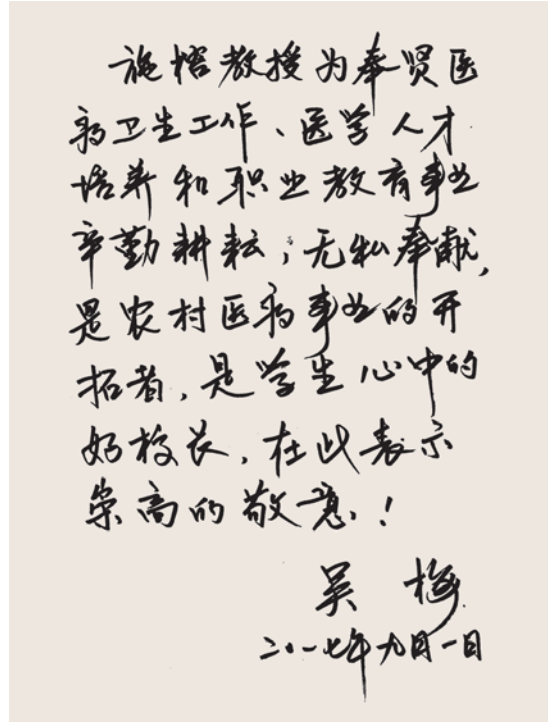 施榕教授为奉贤医
药卫生工作、医学人才
培养和职业教育事业
辛勤耕耘，无私奉献，
是农村医药事业的开
拓者，是学生心中的
好校长，在此表示
崇高的敬意！
吴梅
二〇一七年九月一日